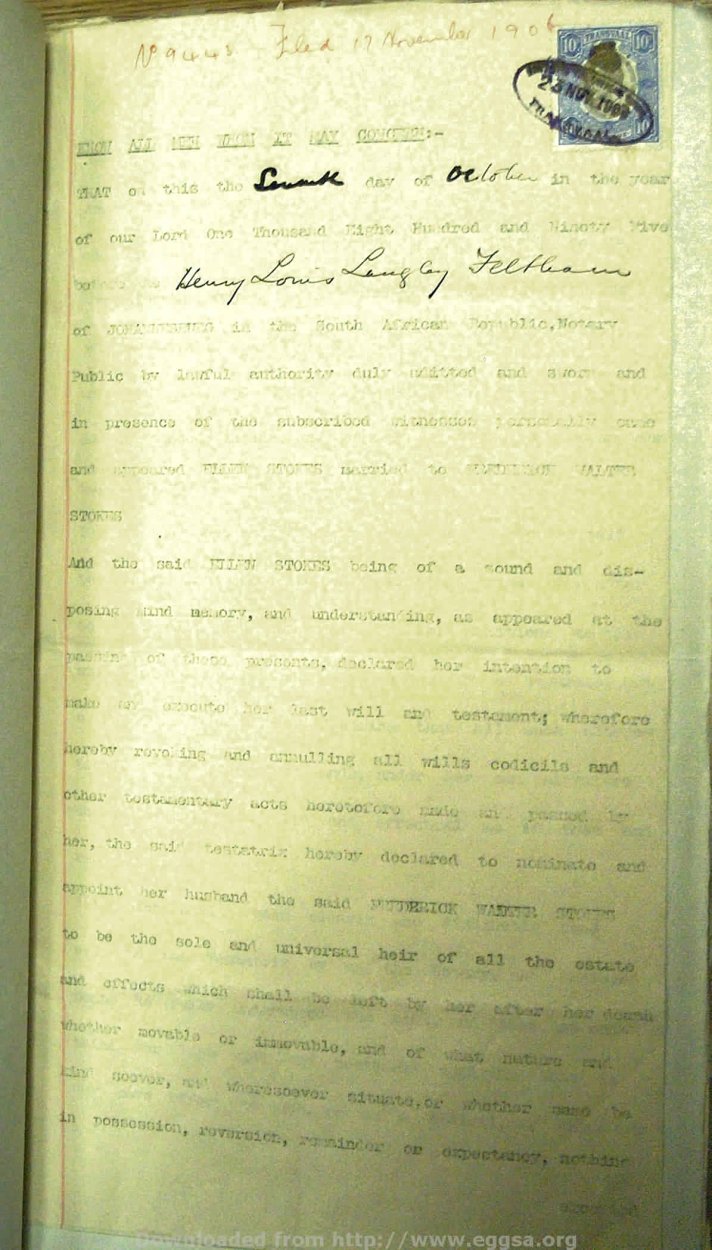 No 9443 Filed 17 November 1906
10 TRANSVAAL 10
23 NOV 1906
TRANSVAAL
KNOW ALL MEN WHOM IT MAY CONCERN:-
THAT on this the Seventh day of October in the year
of our Lord One Thousand Eight Hundred and Ninety Five
before me Henry Louis Langley Feltham
of JOHANNESBURG in the South African Republic, Notary
Public by lawful authority duly admitted and sworn and
in presence of the subscribed witnesses personally came
and appeared ELLEN STOKES married to FREDERICK WALTER
STOKES
And the said ELLEN STOKES being of a sound and dis-
posing mind memory, and understanding, as appeared at the
passing of these presents, declared her intention to
make and execute her last will and testament; wherefore
hereby revoking and annulling all wills codicils and
other testamentary acts heretofore made and passed by
her, the said testatrix hereby declared to nominate and
appoint her husband the said FREDERICK WALTER STOKES
to be the sole and universal heir of all the estate
and effects which shall be left by her after her death
whether movable or immovable, and of what nature and
kind soever, and wheresoever situate, or whether same be
in possession, reversion, remainder or expectancy, nothing
Downloaded from http://www.eggsa.org